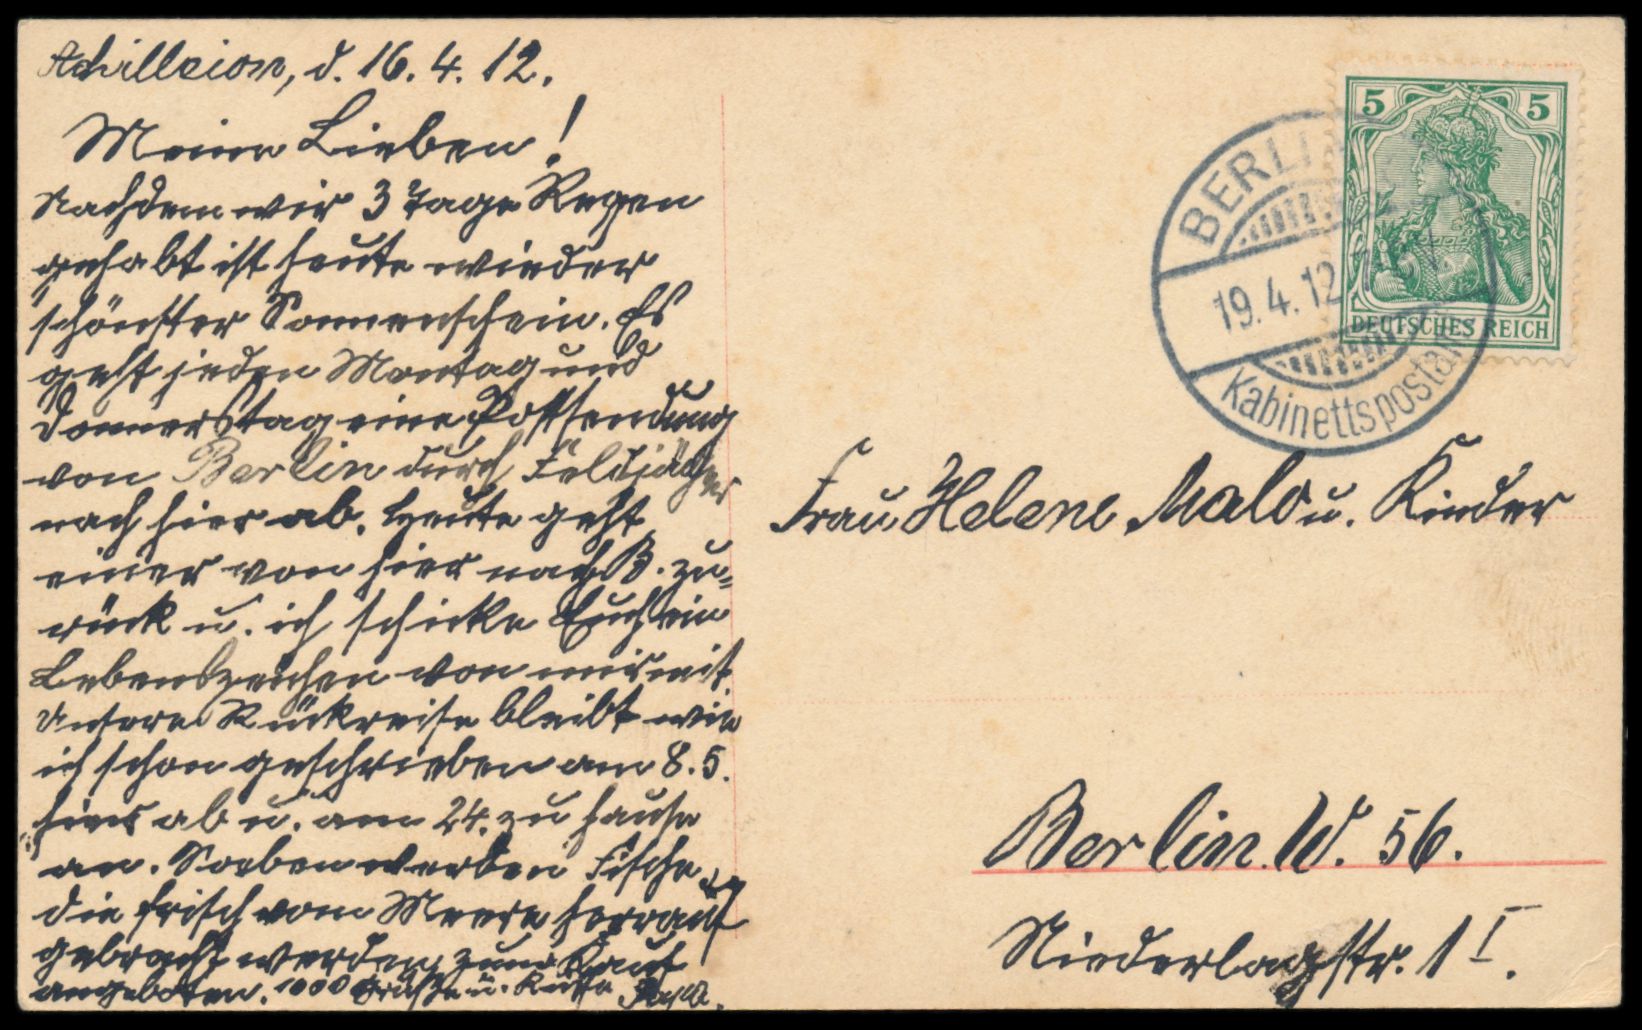 Achilleion, d. 16. 4. 12.
Meine Lieben!
Nachdem wir 3 Tage Regen
gehabt ist heute wieder
schönster Sonnenschein. Es
geht jeden Montag und
Donnerstag eine Postsendung
von Berlin durch Feldjäger
nach hier ab. Heute geht
einer von hier nach B. zu=
rück u. ich schicke Euch ein
Lebenszeichen von mir mit.
Unsere Rückreise bleibt wie
ich schon geschrieben am 8. 5.
hier ab u. am 24. zu Hause
an. Soeben werden Fische
die frisch vom Meere herauf
gebracht werden zum Kauf
angeboten. 1000 Grüße u. Küsse
5 5
DEUTSCHES REICH
BERLIN
19. 4. 12
Kabinettspostamt
Frau Helene Malo u. Kinder
Berlin. W. 56.
Niederlagstr. 1 I.